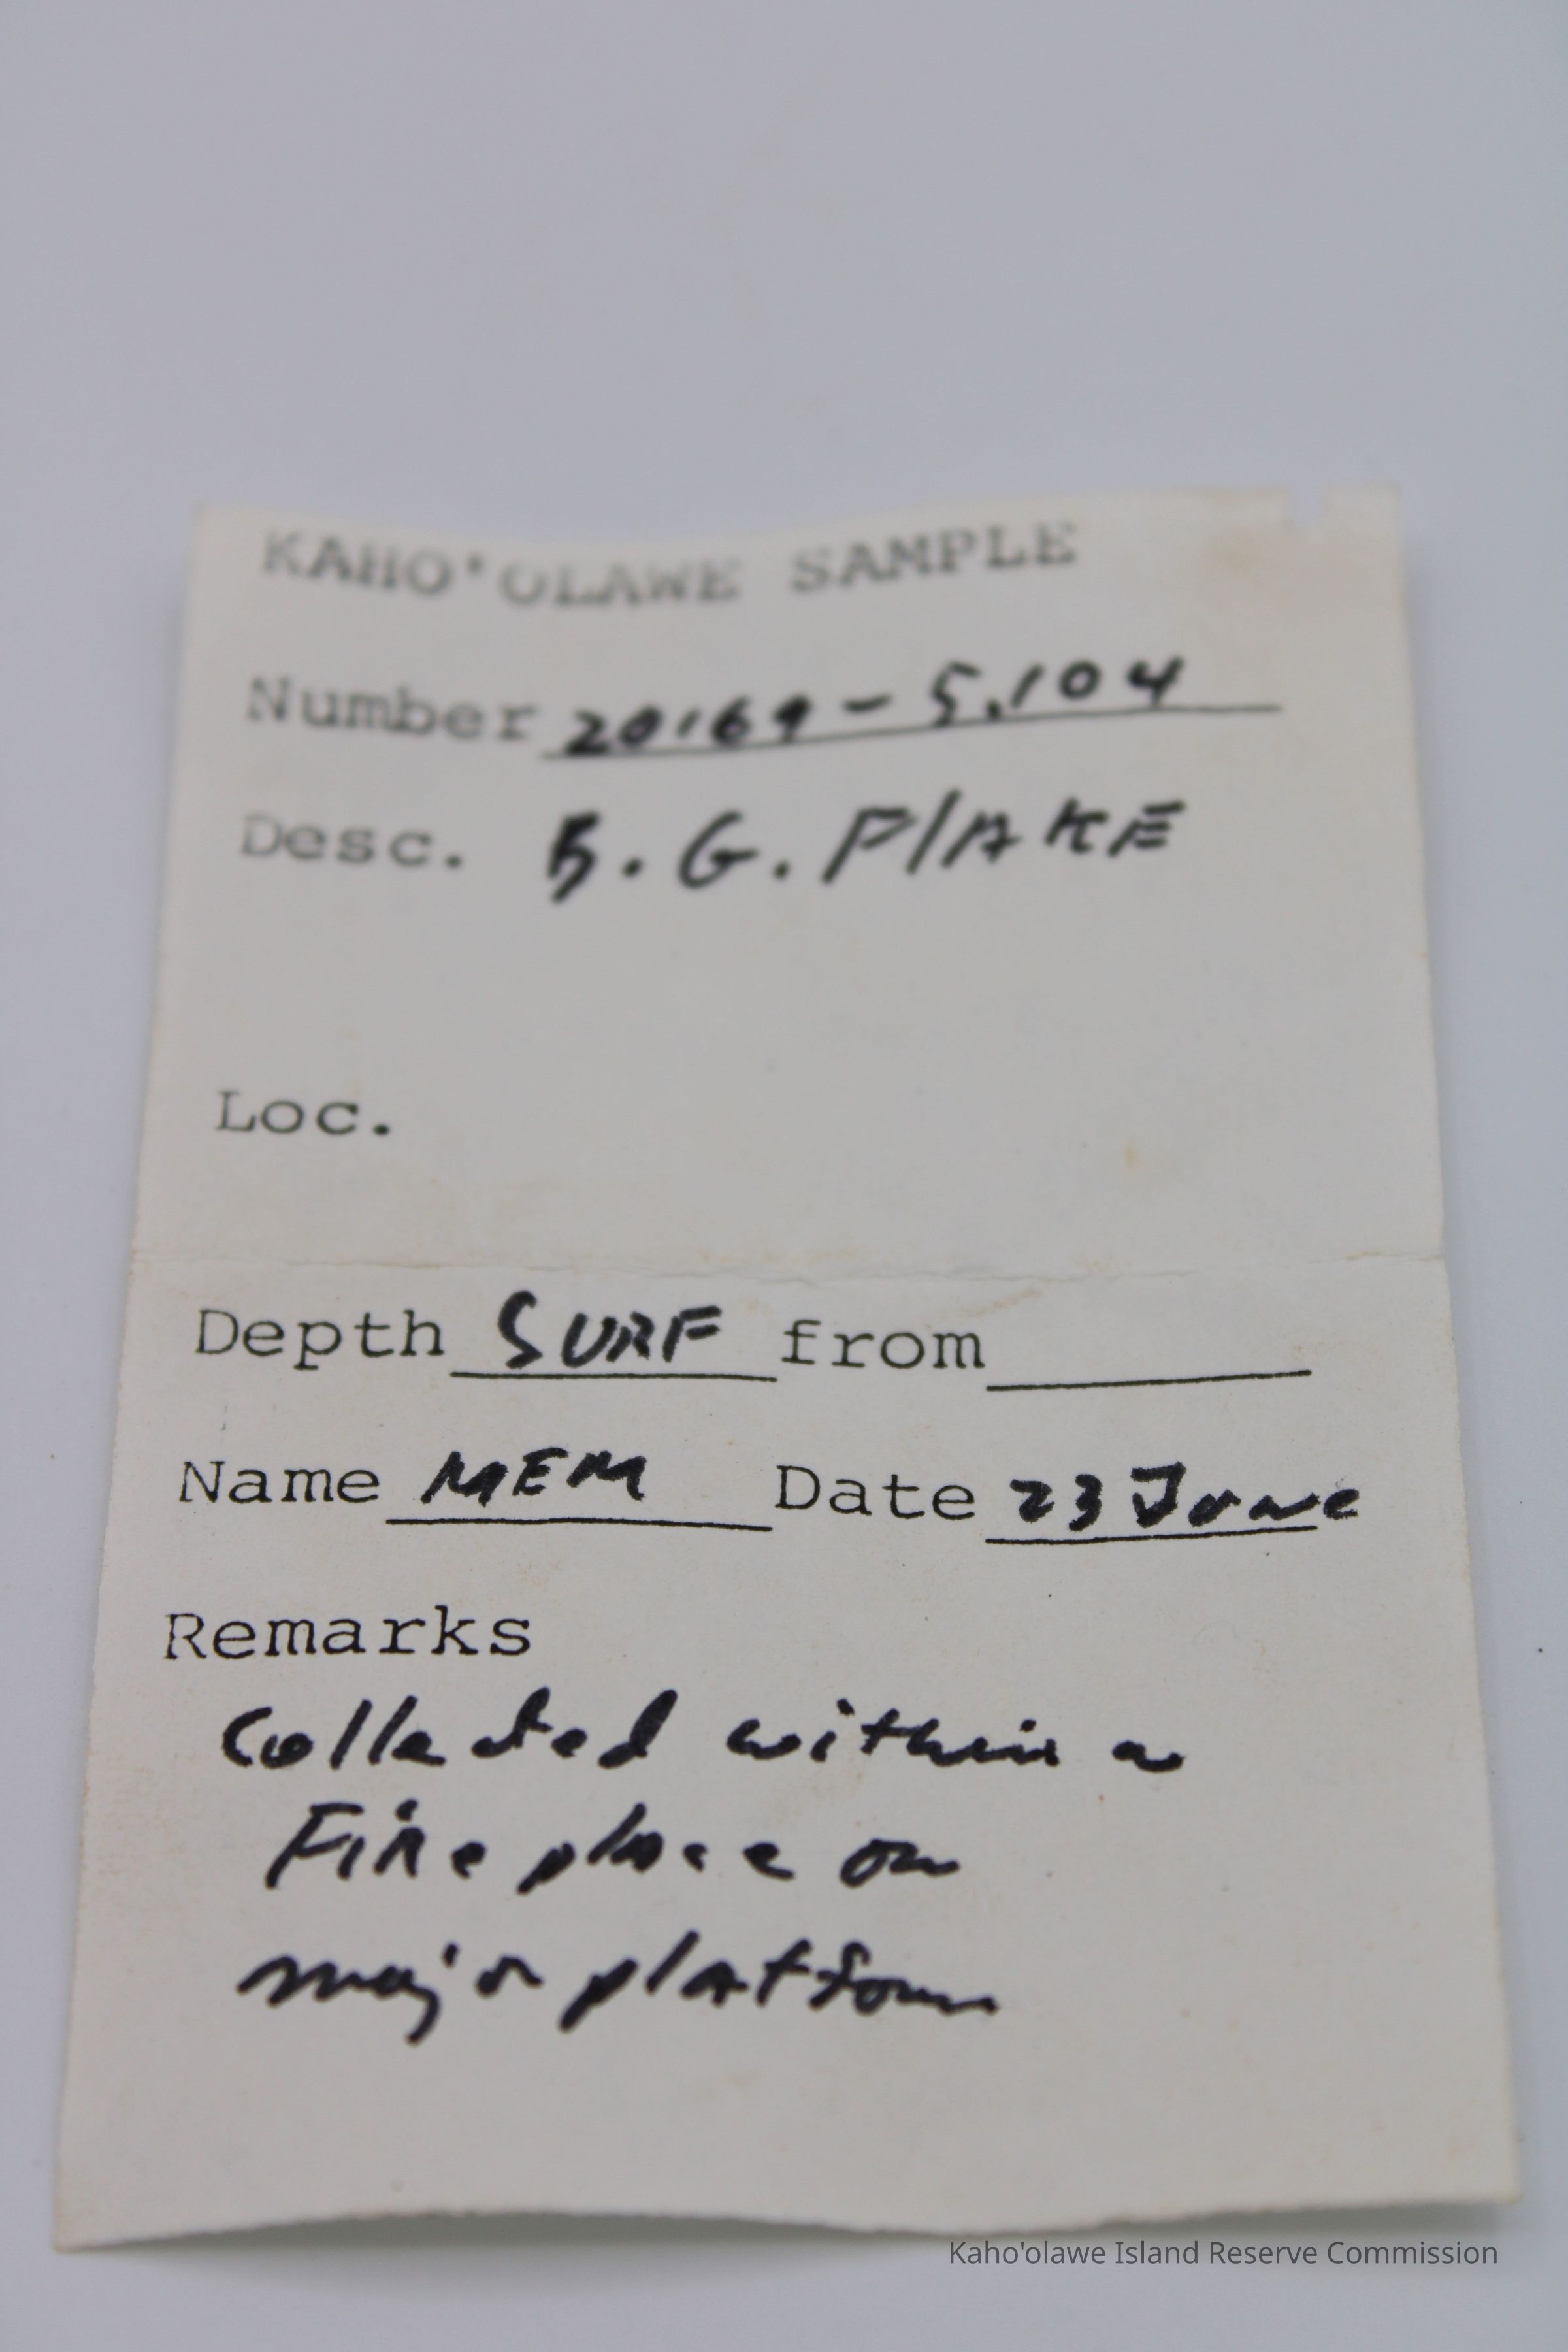 KAHO'OLAWE SAMPLE
Number 20169-5.104
Desc. B.G. FlAKE
Loc.
Depth SURF from
Name MEM Date 23 June
Remarks
Collected within a
Fireplace on
major platform
Kaho'olawe Island Reserve Commission